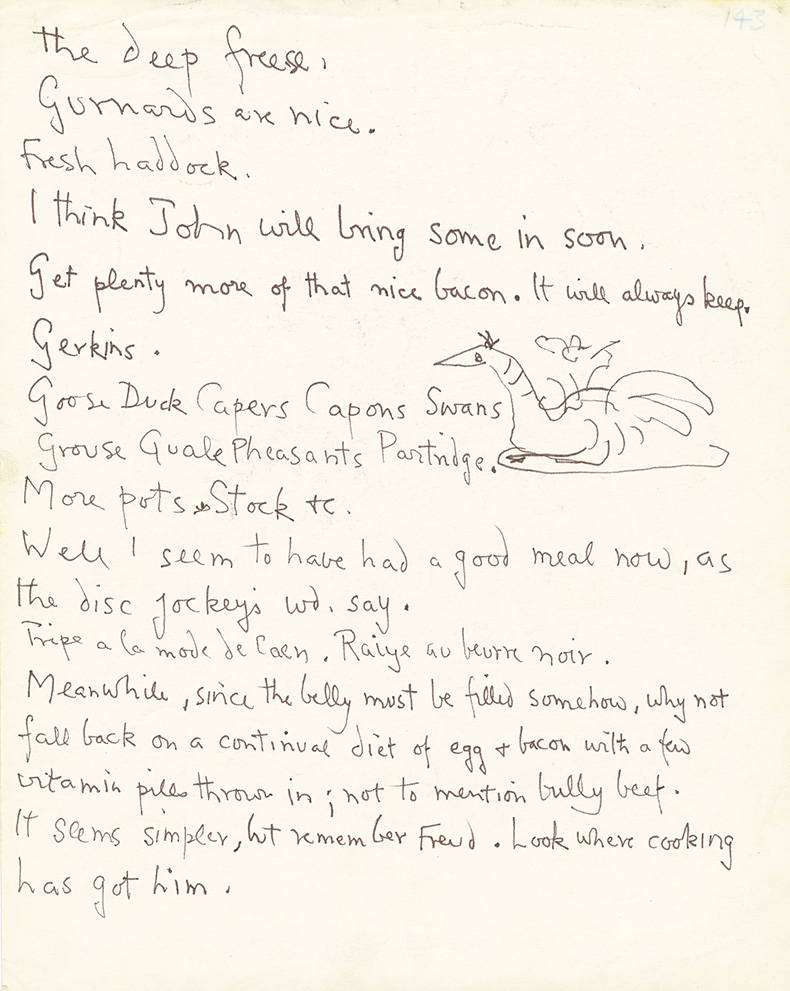 143
the deep freese.
Gurnards are nice.
Fresh haddock.
I think John will bring some in soon.
Get plenty more of that nice bacon. It will always keep.
Gerkins.
Goose Duck Capers Capons Swans
Grouse Quale Pheasants Partridge.
More pots & Stock &c.
Well I seem to have had a good meal now, as
the disc jockeys wd. say.
Tripe a la mode de Caen. Raiye au beurre noir.
Meanwhile, since the belly must be filled somehow, why not
fall back on a continual diet of egg & bacon with a few
vitamin pills thrown in; not to mention bully beef.
It seems simpler, but remember Freud. Look where cooking
has got him.